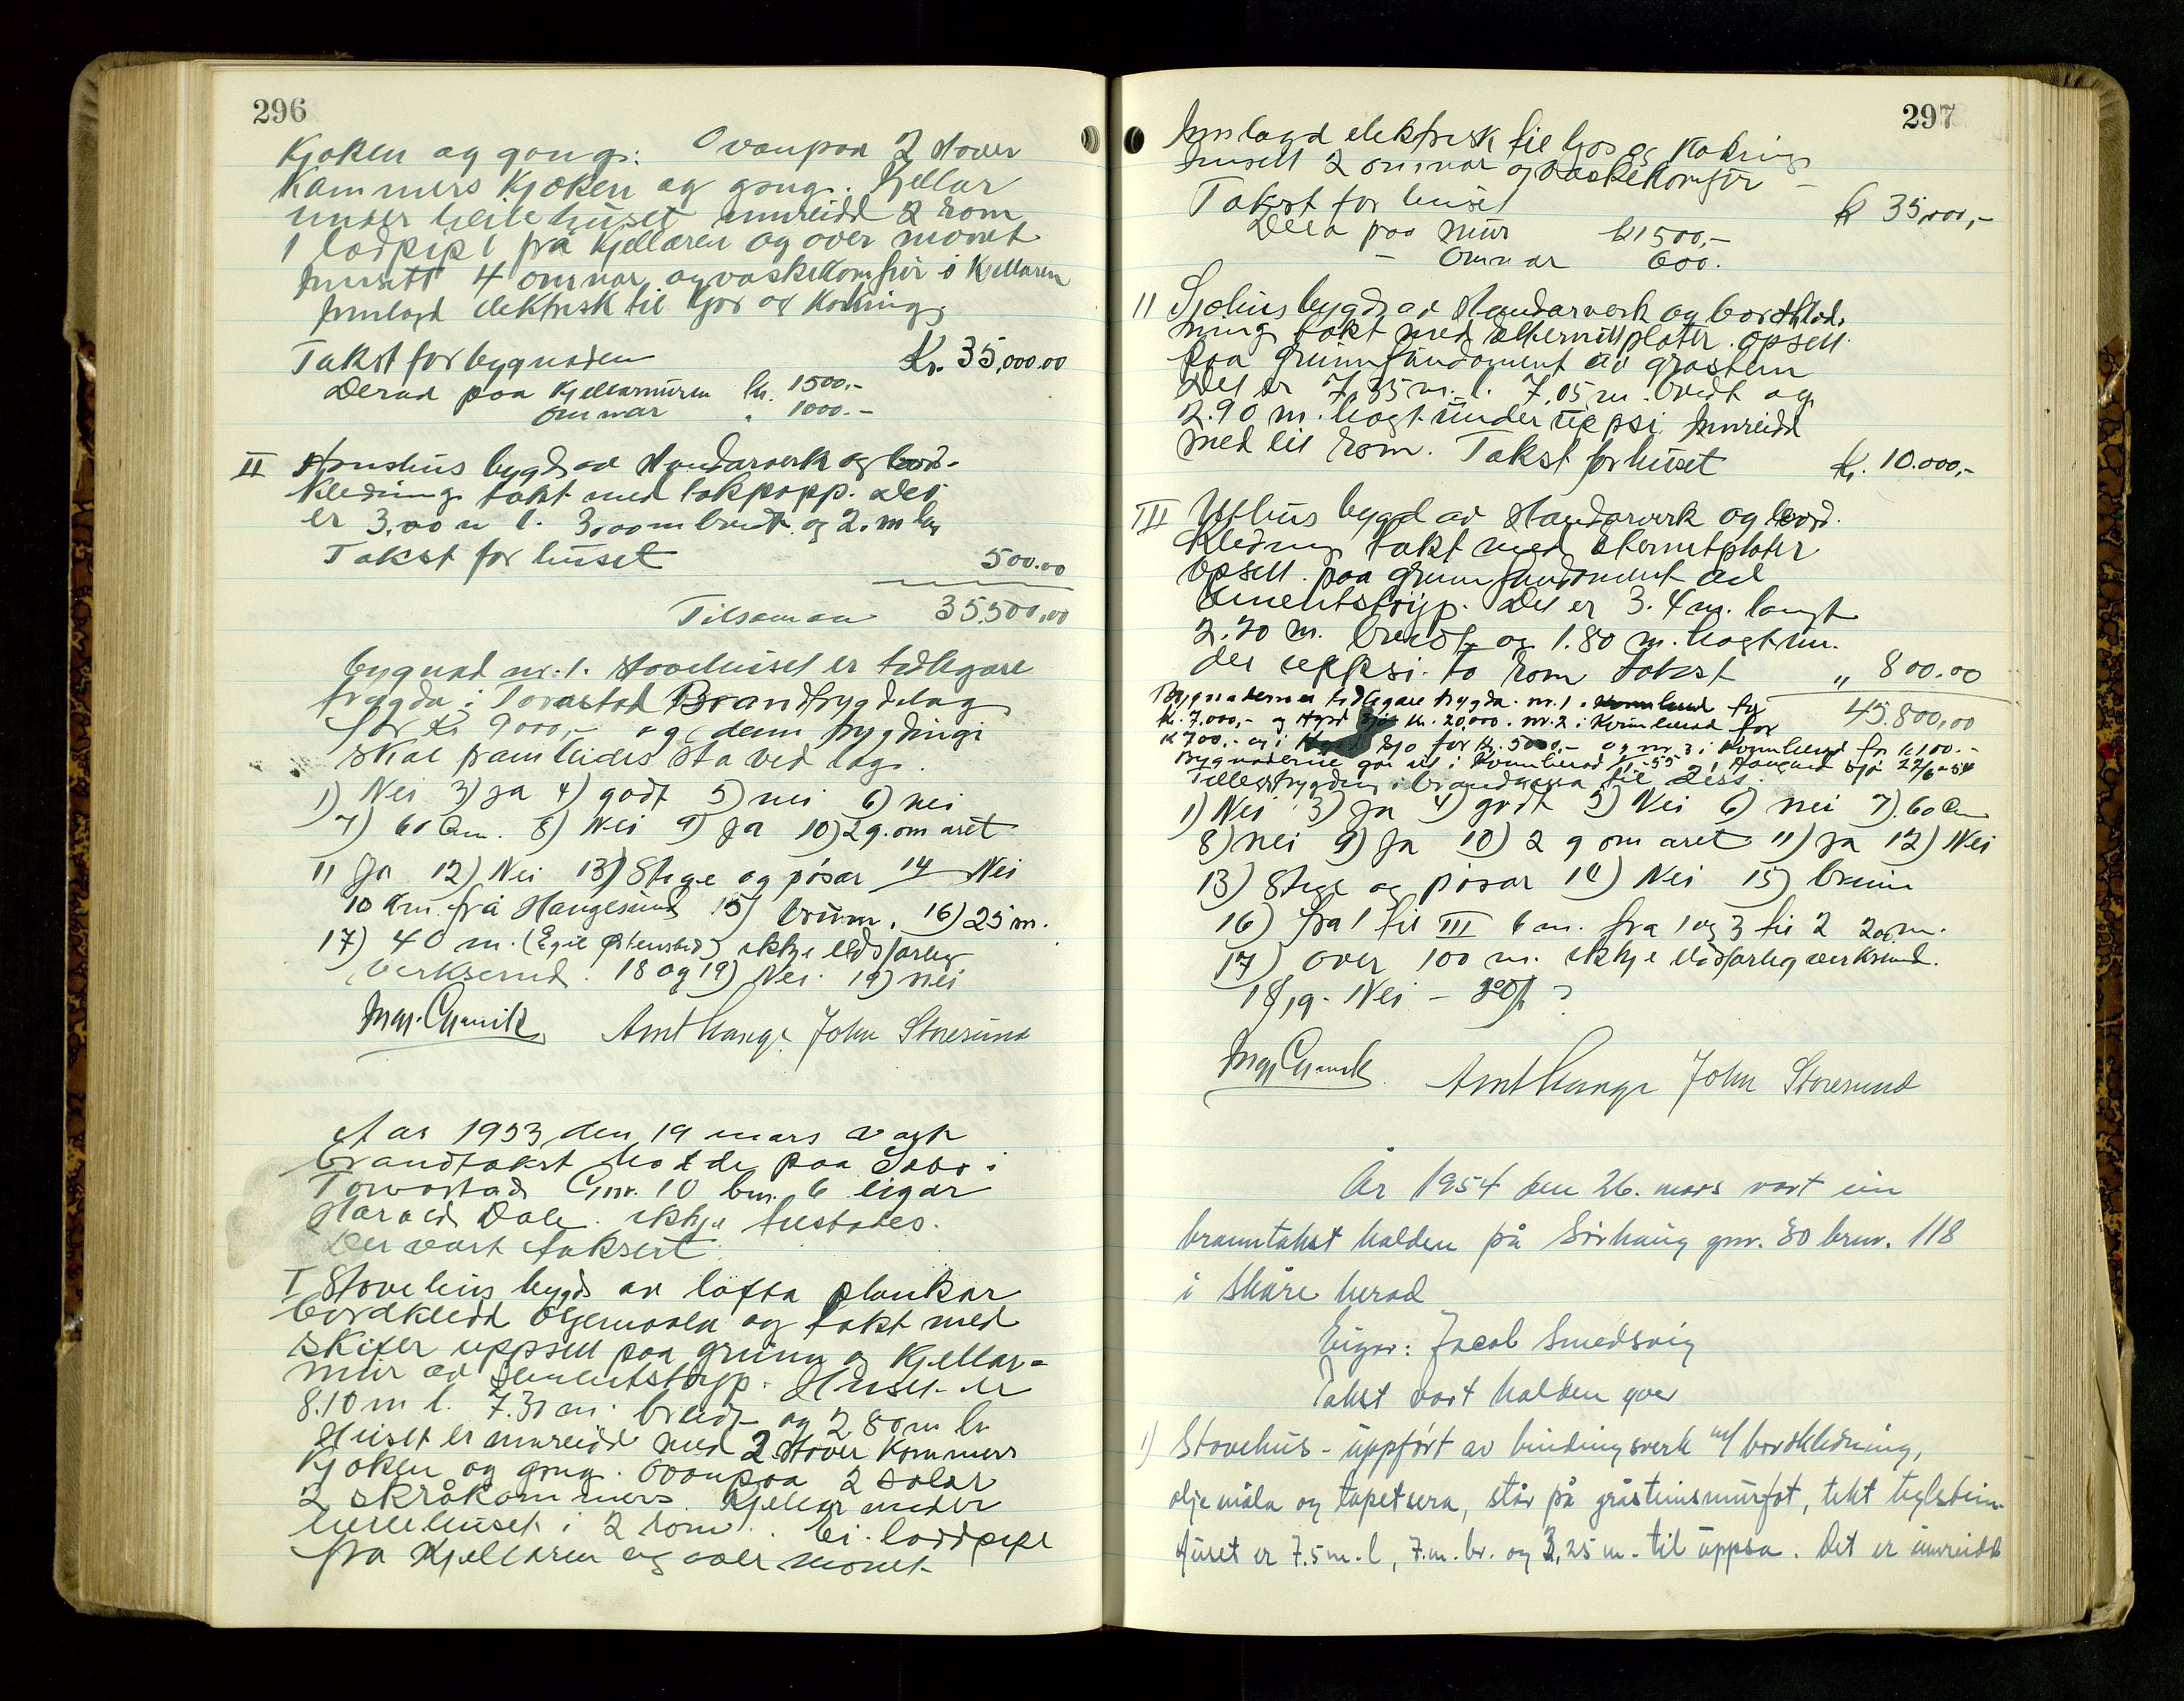 296
Kjøken og gong. Ovanpaa 2 stover
Kammers Kjøken og gong. Kjellar
under heile huset innreidd 2 rom
1 lodpipe frå Kjellaren og over mønet
Innsett 4 omnar og vaskekomfür i Kjellaren
Innlagd elektrisk til ljos og Koking
Takst for bygnaden Kr. 35,000.00
Derav paa Kjellarmüren kr. 1500.-
omnar " 1000.-
II hus bygd av standarverk og bord-
Kledning takt med takpapp. Det
er 3.00 m l. 3,00 m breidt og 2. m høg
Takst for huset 500.00
Tilsaman 35.500,00
bygnad nr. 1. stovehuset er tidlegare
trygda i Torvastad Brandtrygdelag
for Kr 9000,- og denn trygdingi
skal framleides sta ved lag.
1) Nei 3) Ja 4) godt 5) nei 6) nei
7) 60 cm. 8) Nei 9) Ja 10) 2 g. om aret
11 Ja 12) Nei 13) Stige og pøsar 14 Nei
10 km. frå Haugesund 15) brunn. 16) 25 m.
17) 40 m. (Egil Østensbø) ikkje eldsfarleg
verksemd. 18 og 19) Nei 19) nei
Arnt Hauge John Storesund
Aar 1953 den 19 mars vart
brandtakst holde paa Søbø i
Torvastad Gnr. 10 bnr. 6 eigar
Harald Dale. ikkje tilstades.
Der vart taksert
I Stovehus bygd av lafta plankar
bordkledd oljemaala og takt med
skifer uppsett paa grunn og Kjellar-
mür av sementstøyp. Huset er
8.10 m l. 7.30 m. breidt og 2 80 m h
Huset er innreidd med 2 stover Kammers
Kjøken og gong. Ovanpaa 2 salar
2 skråkammers. Kjellar under
heile huset i 2 rom. Ei loddpipe
fra Kjellaren og over mønet
297
Innlagd elektrisk til ljos og Koking
Innsett 2 omnar og vaskekomfür -
Takst for huset kr 35,000,-
Derav paa mür kr 1500,-
- omnar 600.
II Sjøhus bygd av standarverk og bordkled.
ning takt med eternittplater. opsett
paa grunnfundament av grastein
Det er 7,35 m. l. 7,05 m. breidt og
2.90 m. høgt under uppsi Innreidd
med eit rom. Takst for huset Kr. 10.000,-
III Uthus bygd av standarverk og bord.
Kledning takt med eternitplater
opsett paa grunnfundament av
sementstøyp. Det er 3.4 m. langt
2.20 m. breidt og 1.80 m. høgt un.
der uppsi. to rom takst " 800.00
Bygnaderne er tidlegare trygda. nr. 1. for 45.800,00
Kr. 7.000,- og kr. 20.000. nr. 2 i for
K 700.- og i sjø for Kr. 5000,- og nr. 3 i for K 100.-
Bygnaderne gar ut i 22/6-54
Tilleggstrygding i brandkassa til dess.
1) Nei 3) Ja 4) godt 5) Nei 6) nei 7). 60 cm
8) nei 9) Ja 10) 2 g om aret 11) Ja 12) Nei
13) Stige og pøsar 14) Nei 15) brunn
16) fra 1 til III 6 m. fra 1 og 3 til 2 20 m.
17) over 100 m. ikkje eldsfarleg verksemd.
18, 19 - Nei -
Arnt Hauge John Storesund
År 1954 den 26. mars vart ein
branntakst halden på Sørhaug gnr. 30 brnr. 118
i Skåre herad
Eigar: Jacob Smedsvig
Takst vart halden over
1) Stovehus - uppført av bindingsverk m/ bordkledning,
olje måla og tapetsera, står på gråsteinsmurfot, tekt teglstein.
Huset er 7.5 m. l, 7. m. br. og 3,25 m. til uppsa. Det er innreidd